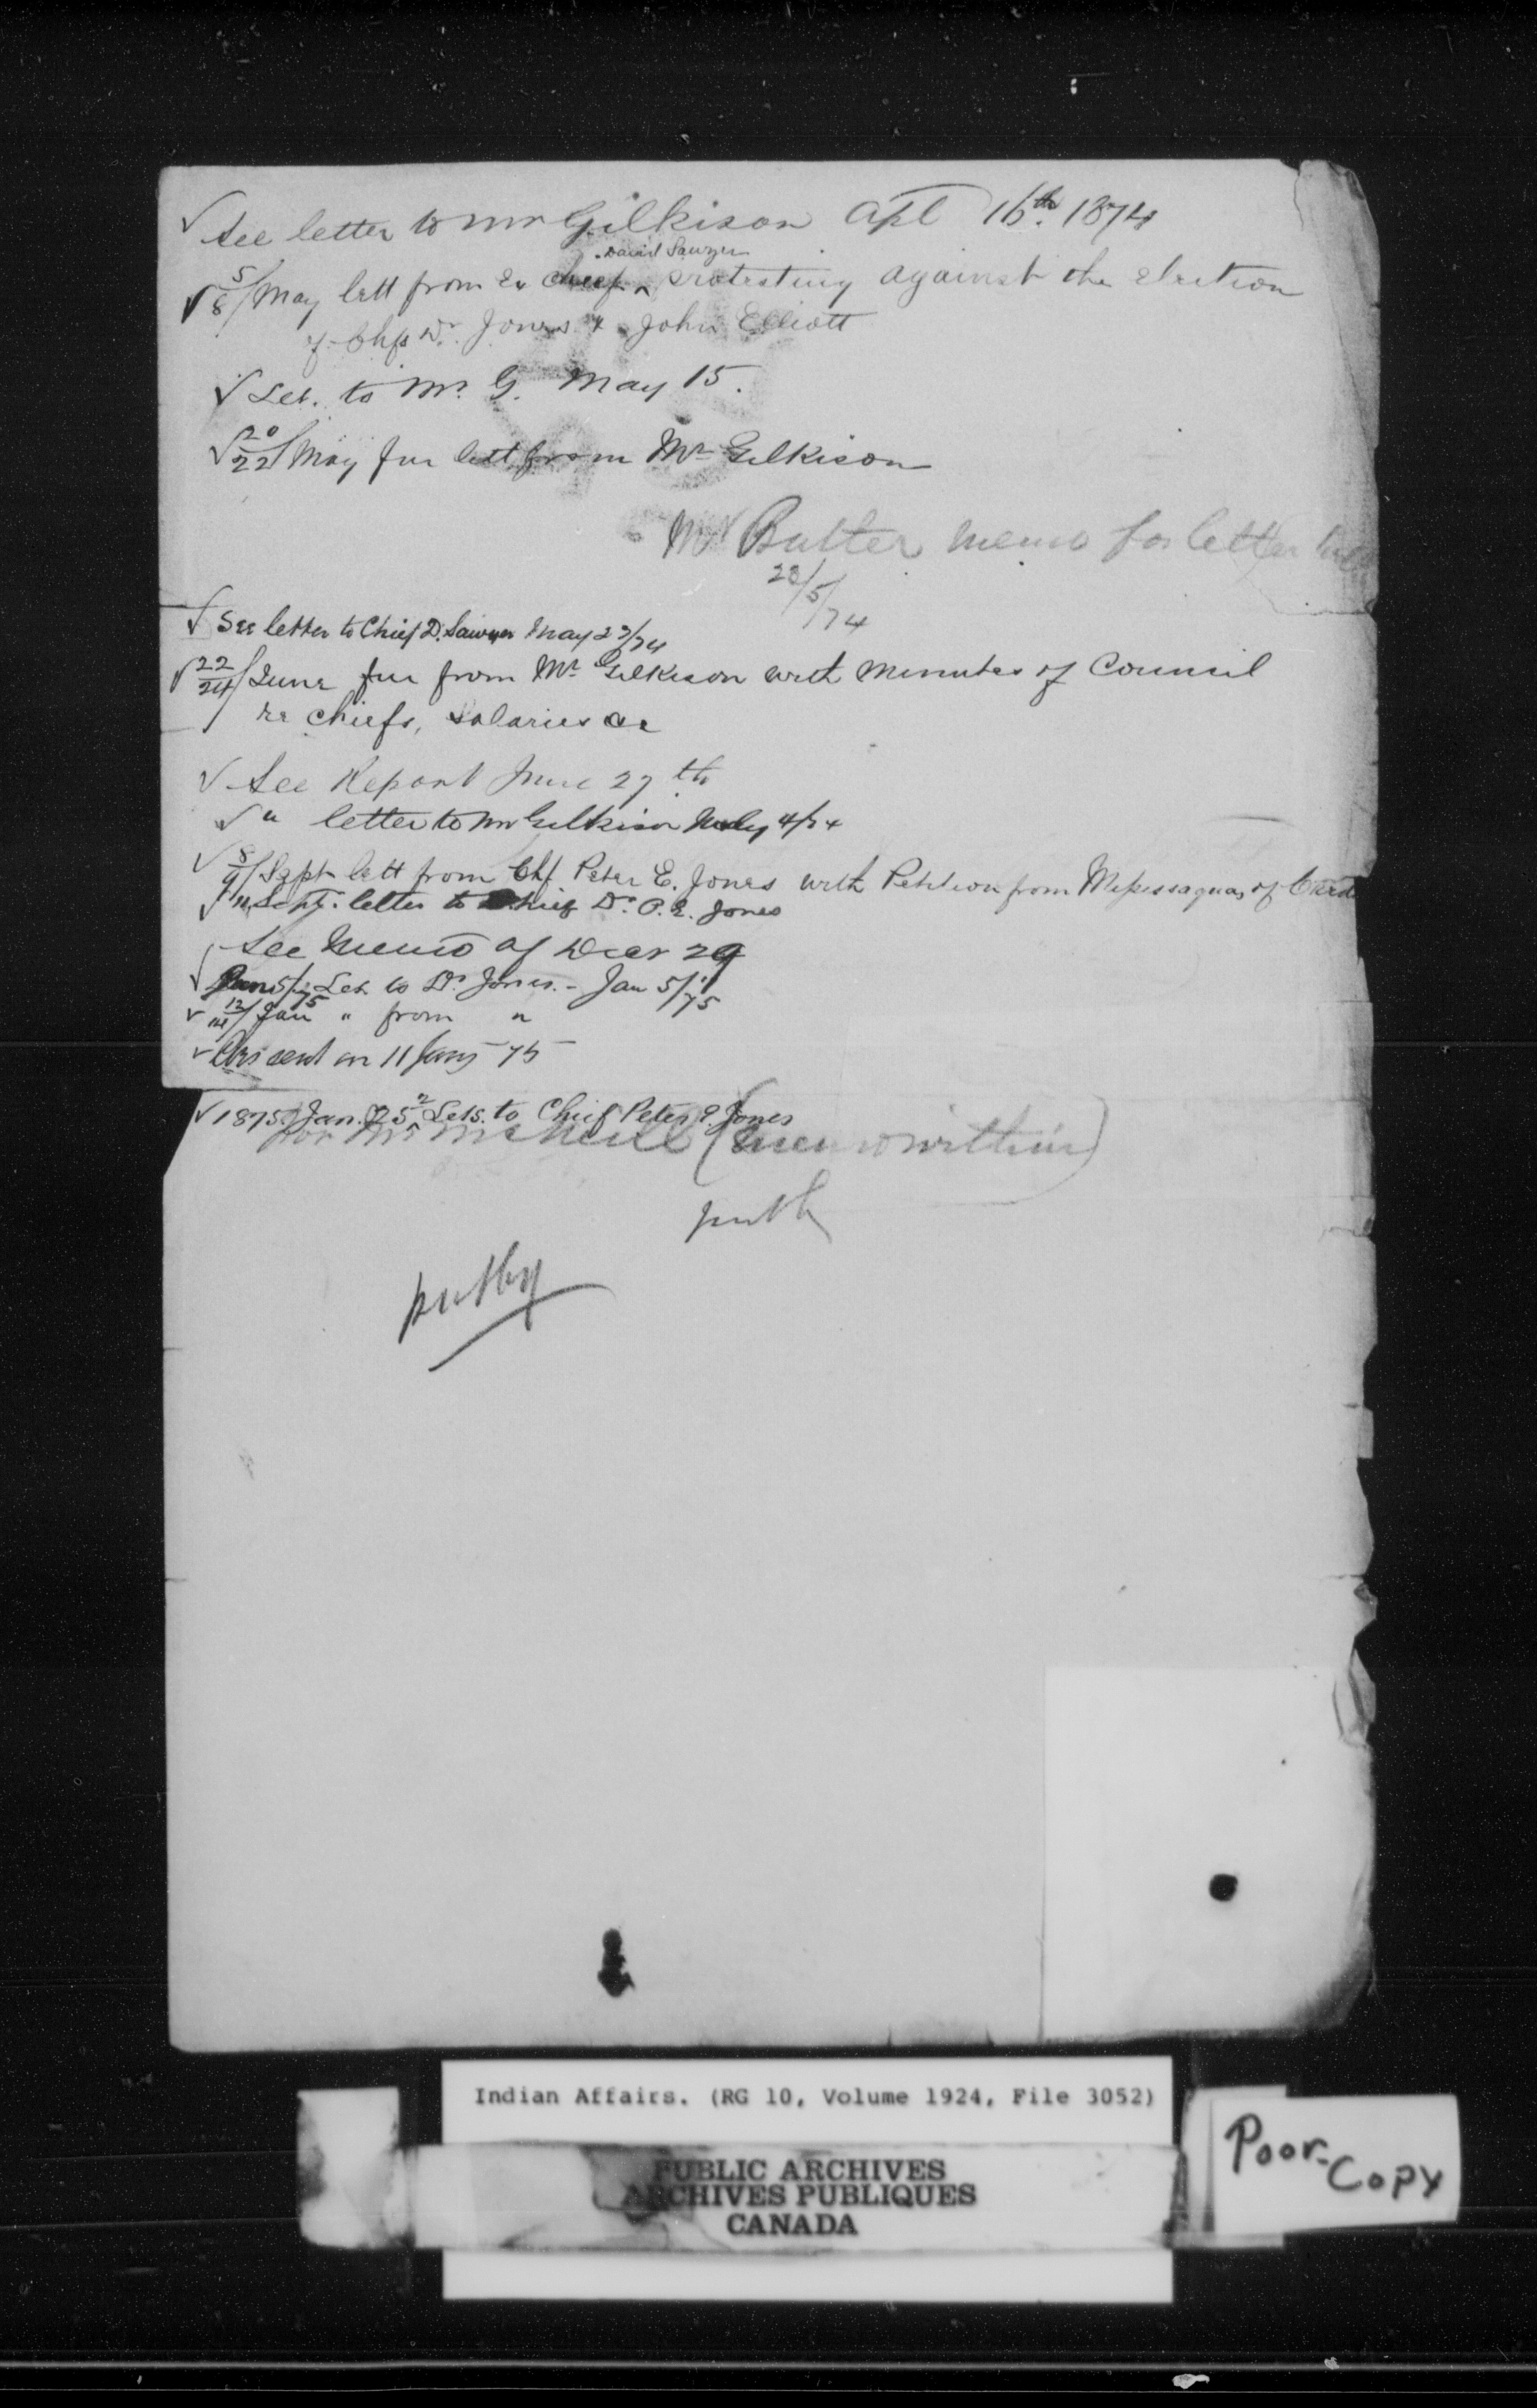 ✓ See letter to Mr Gilkison Apl 16th. 1874
David Sawyer
✓ 5/8 / May lett from Ex Chief ^ protesting against the election
of Chfs Dr. Jones & John Elliott
✓ Let. to Mr. G. May 15.
✓ 20/22 / May fur lett from Mr Gilkison
Mr Butler memo for letter
28/5/74
✓ See letter to Chief D. Sawyer May 29/74
✓ 22/24 / June fur from Mr Gilkison with Minutes of Council
re Chiefs, Salaries &c
✓ See Report June 27th
✓ " letter to Mr Gilkison July 4/74
✓ 8/9 / Sept lett from Chf Peter E. Jones with Petition from Missisaguas of Cred
✓ 11 Sept. letter to Chief Dr. P. E. Jones
See Memo of Decr 29
✓ Jan 5/75 Let to Dr Jones. - Jan 5/75
✓ 12/14 / Jan " from "
✓ sent on 11 Jany 75
✓ 1875. Jan. 25 2 Lets. to Chief Peter E. Jones
for Mr McNeill (memo within)
put by
Indian Affairs. (RG 10, Volume 1924, File 3052)
PUBLIC ARCHIVES
ARCHIVES PUBLIQUES
CANADA
Poor-
Copy